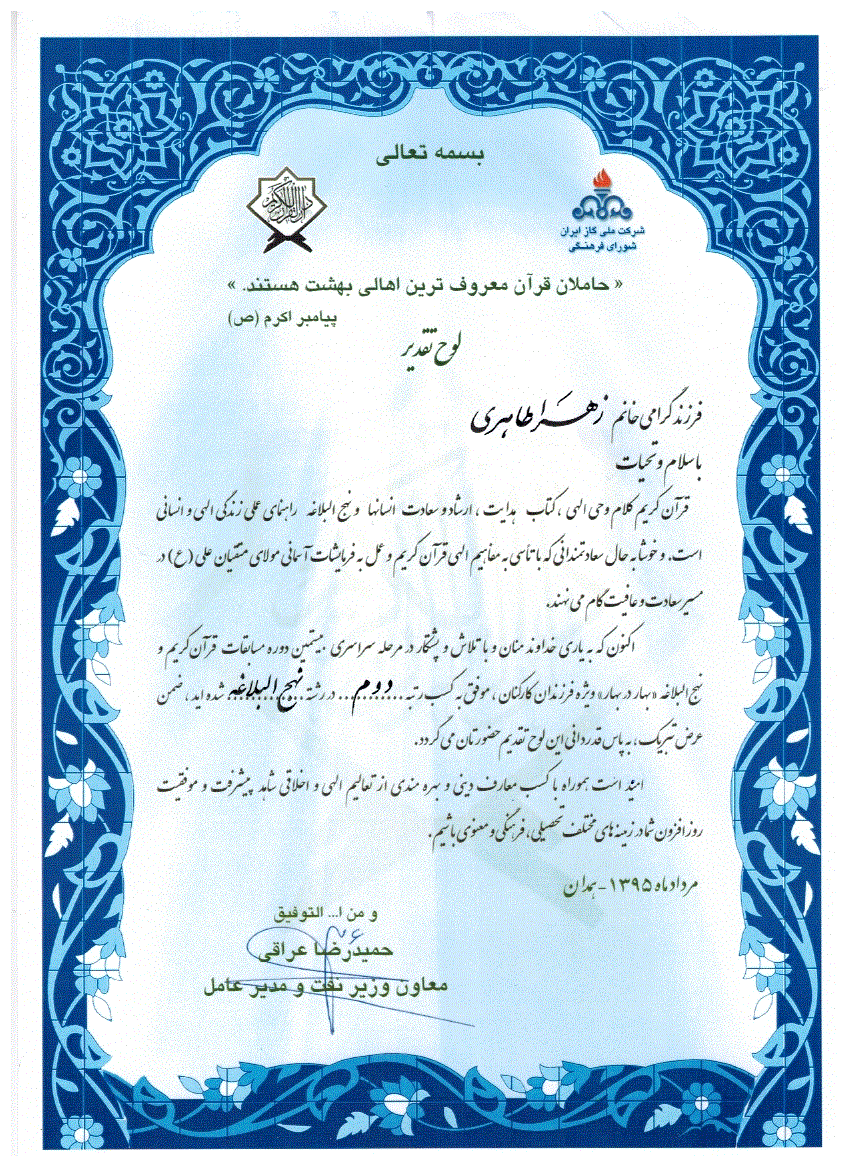 بسمه تعالی
دارالقرآن الکریم
شرکت ملی گاز ایران
شورای فرهنگی
« حاملان قرآن معروف ترین اهالی بهشت هستند. »
پیامبر اکرم (ص)
لوح تقدیر
فرزند گرامی خانم زهرا طاهری
با سلام و تحیات
قرآن کریم کلام وحی الهی ، کتاب هدایت ، ارشاد و سعادت انسانها و نهج البلاغه راهنمای علی زندگی الهی و انسانی
است. و خوشا به حال سعادتمندانی که با تأسی به مفاهیم الهی قرآن کریم و عمل به فرمایشات آسمانی مولای متقیان علی (ع) در
مسیر سعادت و عافیت گام می نهند.
اکنون که به یاری خداوند منان و با تلاش و پشتکار در مرحله سراسری بیستمین دوره مسابقات قرآن کریم و
نهج البلاغه «بهار در بهار» ویژه فرزندان کارکنان ، موفق به کسب رتبه ...دوم... در رشته ...نهج البلاغه... شده اید ، ضمن
عرض تبریک، به پاس قدردانی این لوح تقدیم حضورتان می گردد.
امید است همواره با کسب معارف دینی و بهره مندی از تعالیم الهی و اخلاقی شاهد پیشرفت و موفقیت
روزافزون شما در زمینه های مختلف تحصیلی ، فرهنگی و معنوی باشیم .
مرداد ماه ۱۳۹۵ - همدان
و من ا... التوفیق
حمیدرضا عراقی
معاون وزیر نفت و مدیر عامل